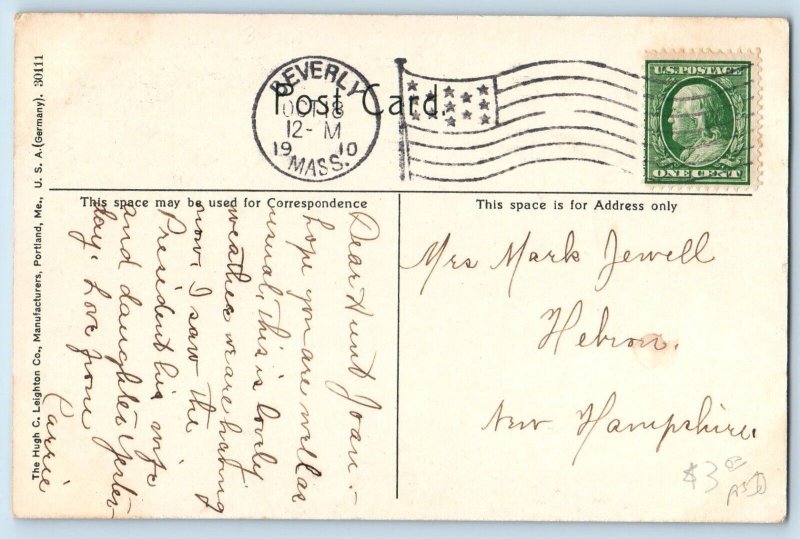 The Hugh C. Leighton Co., Manufacturers, Portland, Me., U. S. A. (Germany). 30111
BEVERLY
OCT 18
12- M
1910
MASS.
Post Card.
U.S. POSTAGE
ONE CENT
This space may be used for Correspondence
This space is for Address only
Dear Aunt Joan:-
hope you are well as
usual, this is lovely
weather we are having
now. I saw the
President his wife
and daughter yester-
day. Love from
Carrie
Mrs Mark Jewell
Hebron.
New Hampshire